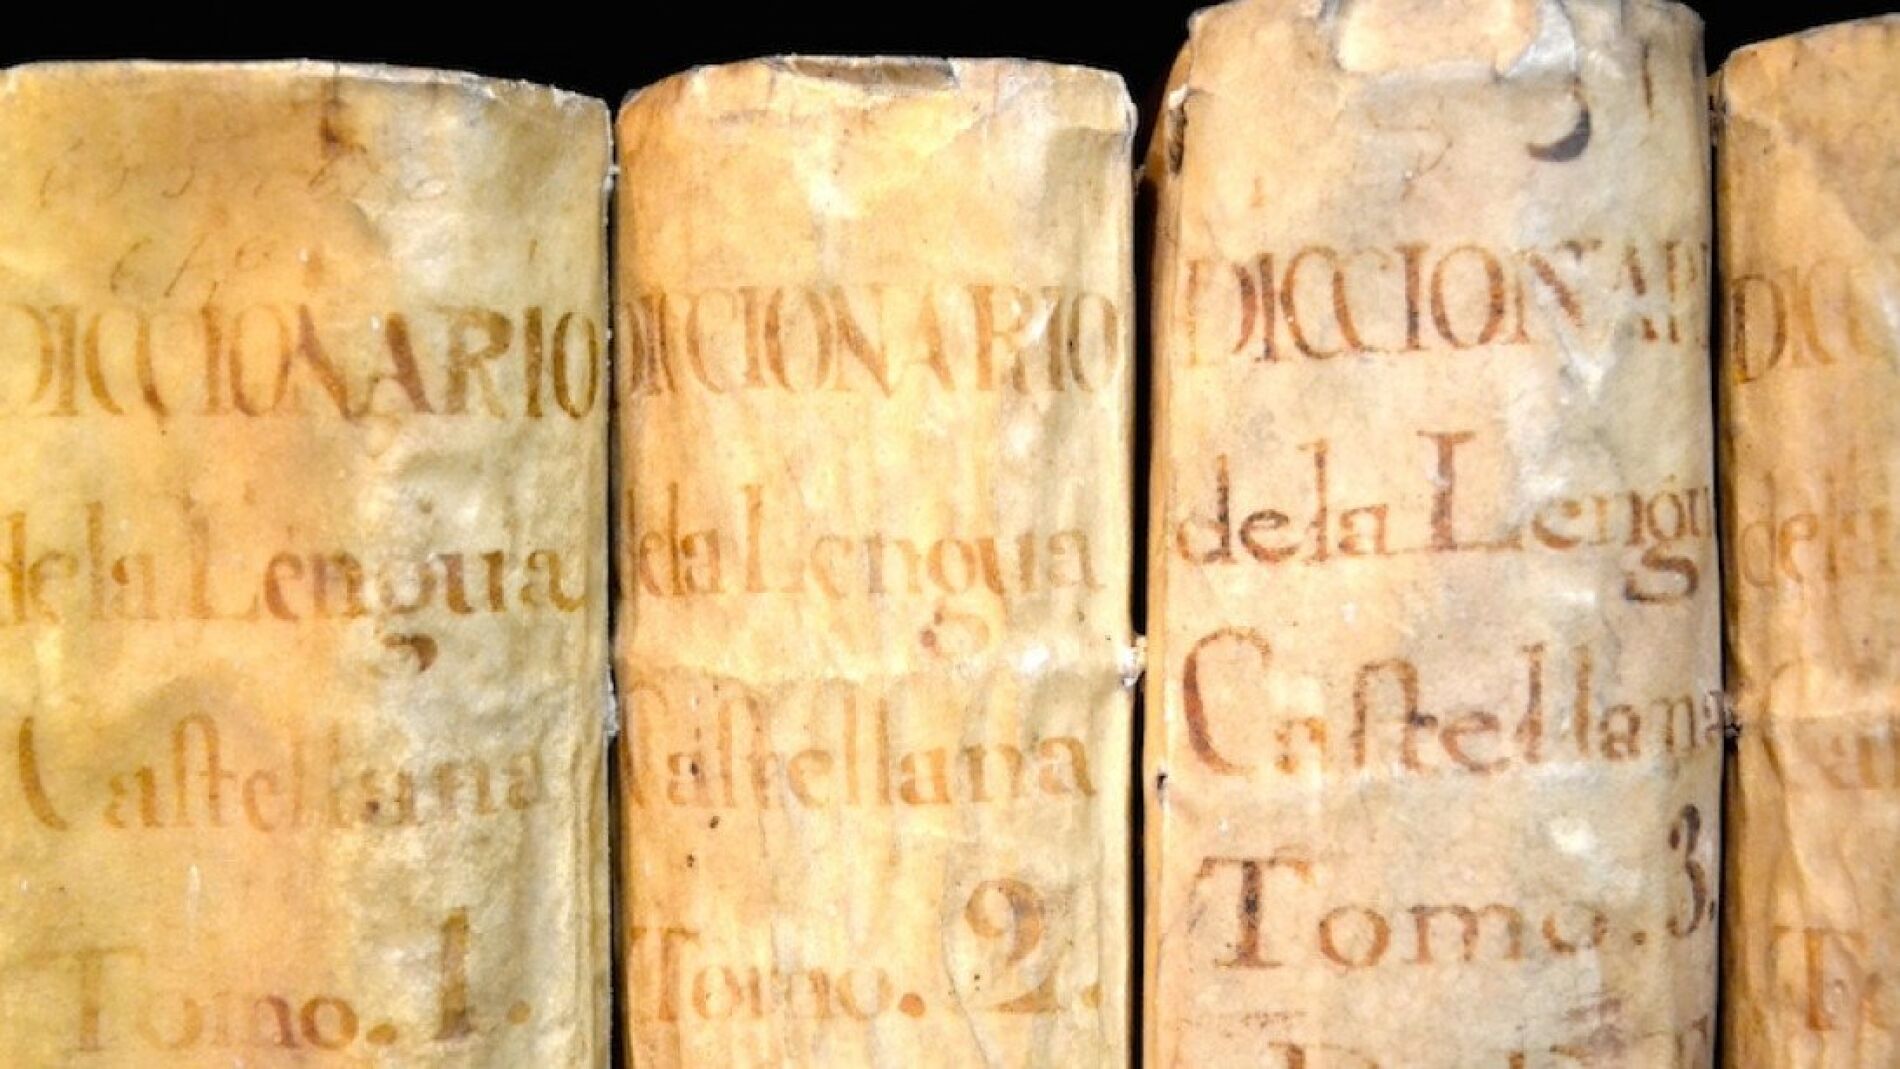 DICCIONARIO
de la Lengua
Castellana
Tomo. 1.
DICCIONARIO
de la Lengua
Castellana
Tomo. 2.
DICCIONAR
de la Lengu
Castellana
Tomo. 3.
DICC
de la
Cast
To